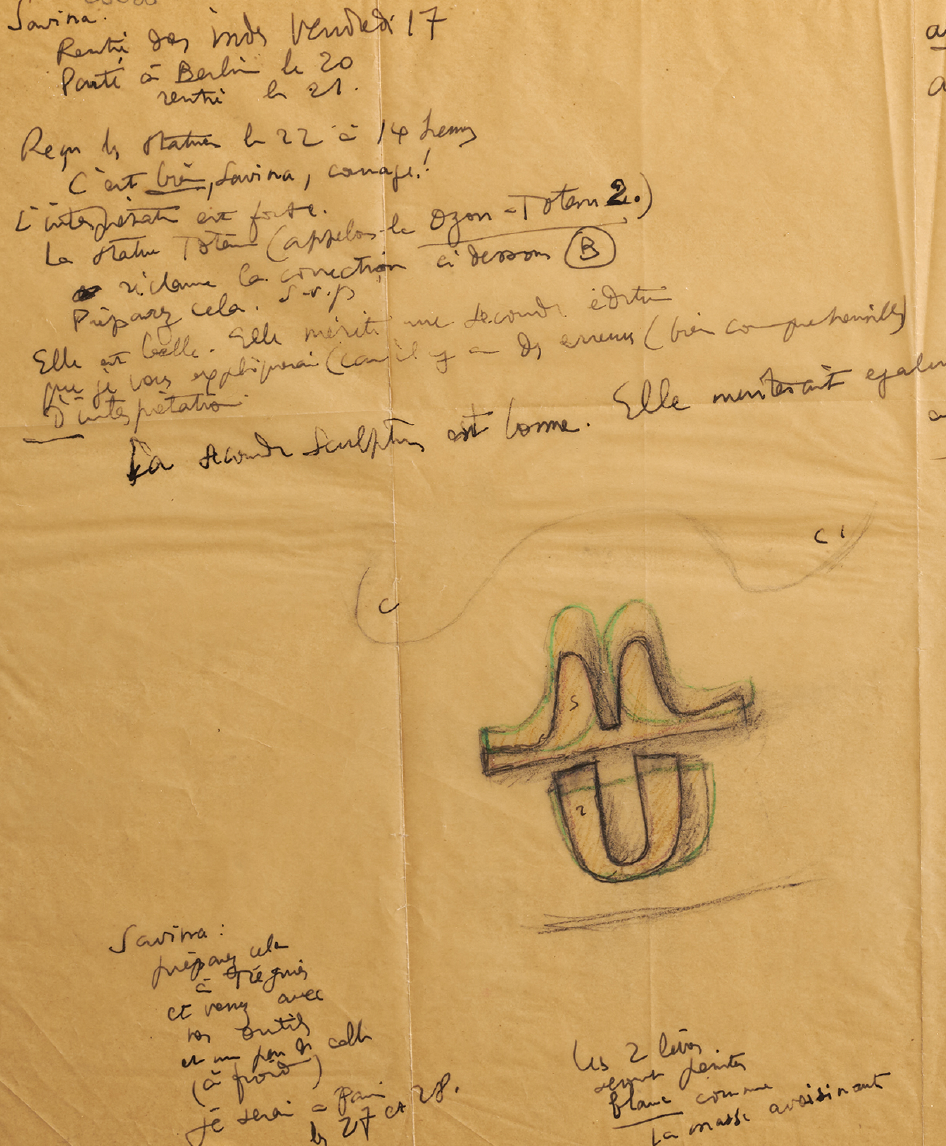 Savina :
Rentré des Indes Vendredi 17
Parti à Berlin le 20
rentré le 21.
Reçu les statues le 22 à 14 heures
C'est bien, Savina, courage !
L'interprétation est forte.
La statue Totem (appelons-le Ozon-Totem 2.)
réclame la correction ci dessous (B)
Préparez cela. S.v.p
Elle est belle. Elle mérite une seconde édition
que je vous expliquerai (car il y a des erreurs (bien compréhensibles)
d'interprétation
La seconde sculpture est bonne. Elle mériterait égalem
C
C1
5
2
Savina :
préparez cela
à Tréguier
et venez avec
vos outils
et un peu de colle
(à froid)
je serai à Paris
les 27 et 28.
Les 2 lèvres
seront peintes
blanc comme
la masse avoisinant
a
a